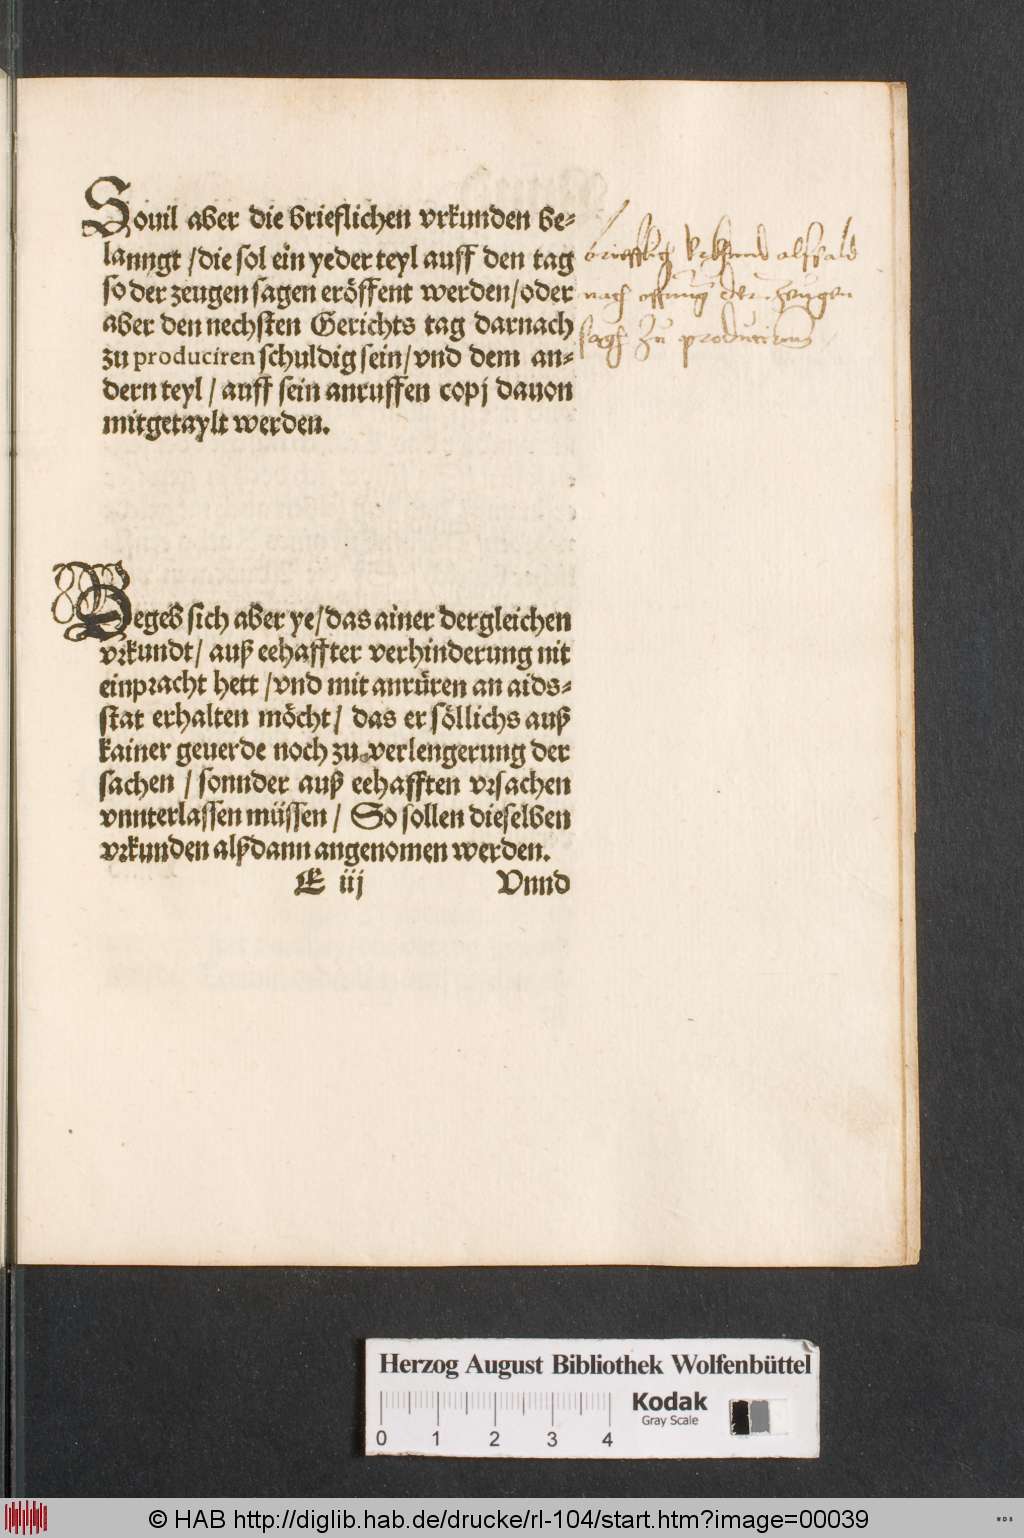 Souil aber die brieflichen vrkunden be-
lanngt / die sol ein yeder teyl auff den tag
so der zeugen sagen eröffent werden / oder
aber den nechsten Gerichts tag darnach
zu produciren schuldig sein / vnd dem an-
dern teyl / auff sein anruffen copj dauon
mitgetaylt werden.
brieffliche Vrkhund alßbald
nach offnung der Zeugen
sage Zu produciren
Begeb sich aber ye / das ainer dergleichen
vrkundt / auß eehaffter verhinderung nit
einpracht hett / vnd mit anrüren an aids-
stat erhalten möcht / das er söllichs auß
kainer geuerde noch zu verlengerung der
sachen / sonnder auß eehafften vrsachen
vnnterlassen müssen / So sollen dieselben
vrkunden alßdann angenomen werden.
E iij Vnnd
Herzog August Bibliothek Wolfenbüttel
Kodak
Gray Scale
0 1 2 3 4
© HAB http://diglib.hab.de/drucke/rl-104/start.htm?image=00039